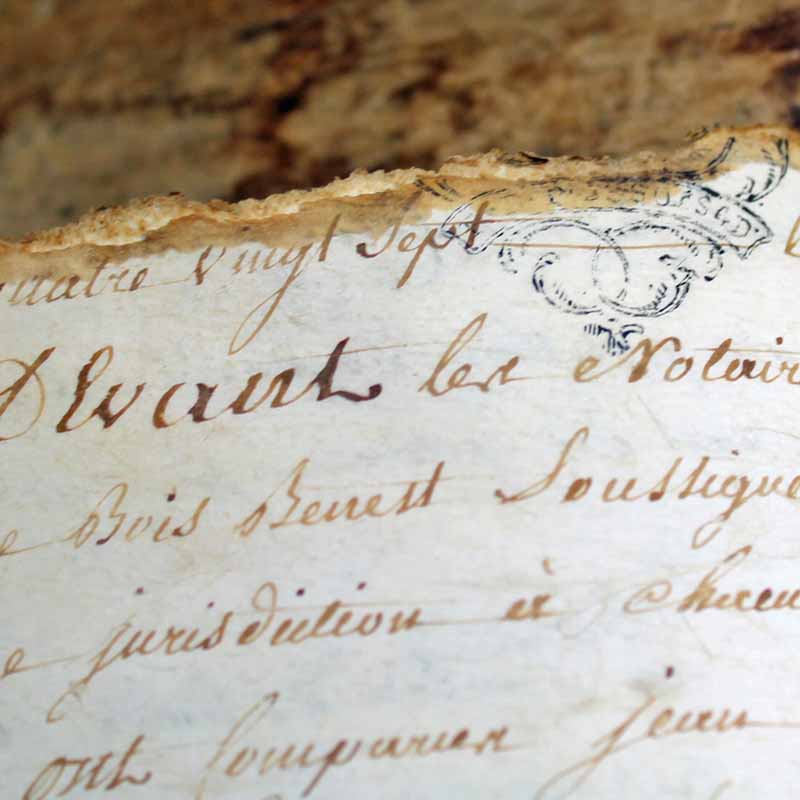 quatre vingt Sept
Devant les Notair
e Bois Benest Soussigne
e jurisdiction à chacun
ont Comparus jean